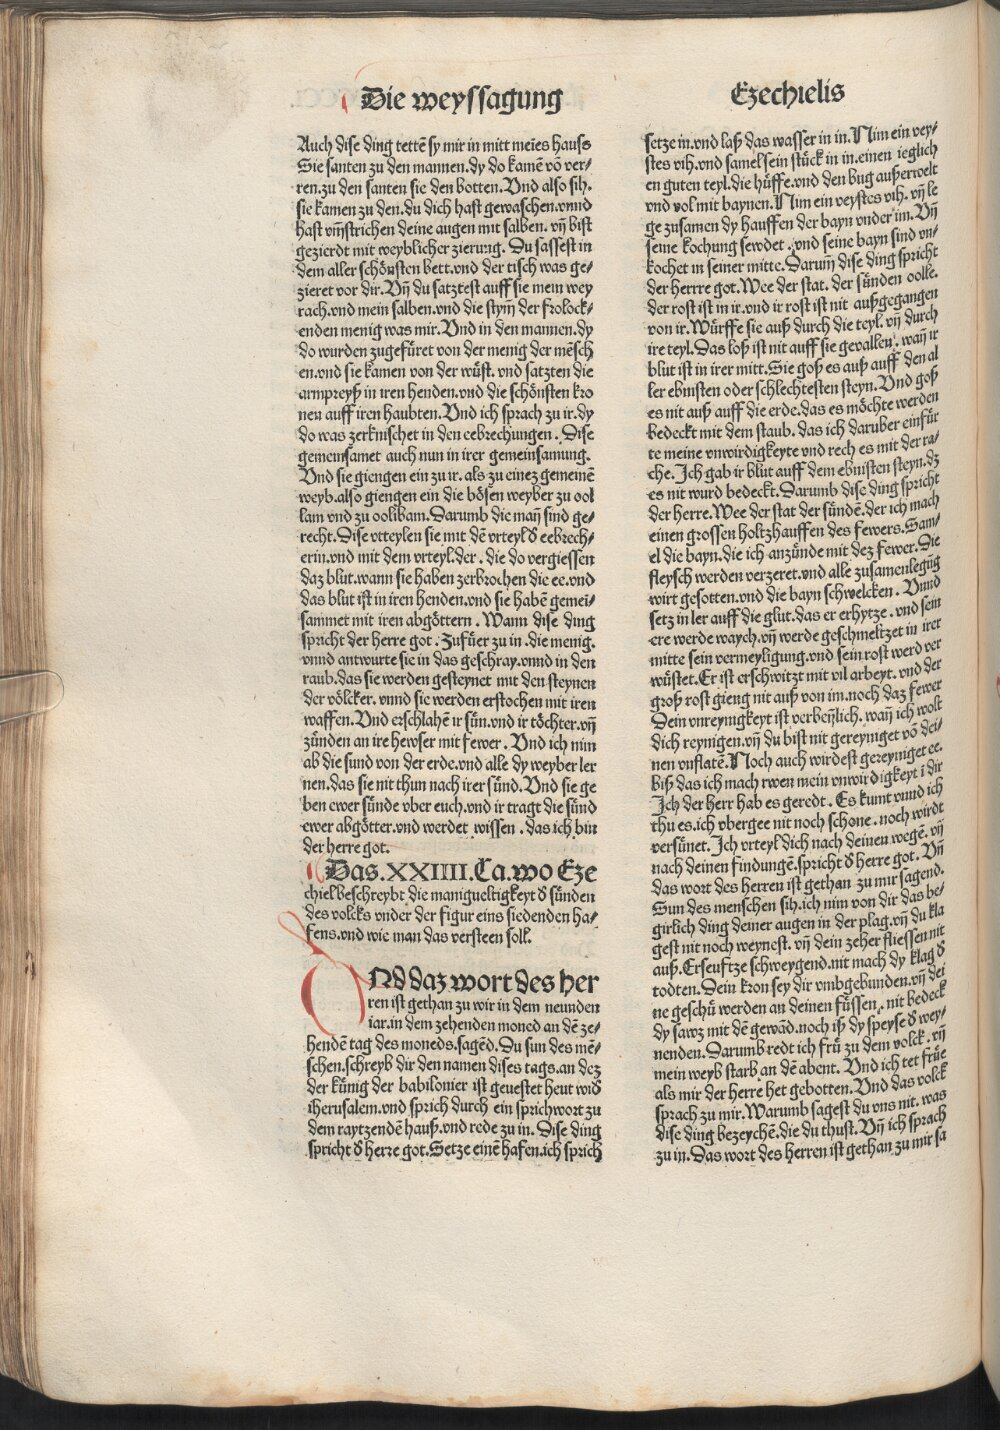 Die weyssagung
Ezechielis
Auch dise ding tettē sy mir in mitt meīes hauss
Sie santen zu den mannen.dy do kamē võ ver⸗
ren.zu den santen sie den botten.Vnd also sih.
sie kamen zu den.du dich hast gewaschen.vnnd
hast vm̄strichen deine augen mit salben. vn̄ bist
gezierdt mit weyblicher zierung. Du sassest in
dem aller schönsten bett.vnd der tisch was ge⸗
zieret vor dir.Vn̄ du satztest auff sie mein wey
rach.vnd mein salben.vnd die stym̄ der frolock⸗
enden menig was mir.Vnd in den mannen.dy
do wurden zugefüret von der menig der mēsch
en.vnd sie kamen von der wüst. vnd satzten die
armpreyß in iren henden.vnd die schönsten kro
nen auff iren haubten.Vnd ich sprach zu ir.dy
do was zerknischet in den eebrechungen. Dise
gemeinsamet auch nun in irer gemeinsamung.
Vnd sie giengen ein zu ir. als zu einez gemeinē
weyb.also giengen ein die bösen weyber zu ool
lam vnd zu oolibam.Darumb die man̄ sind ge⸗
recht.Dise vrteylen sie mit dē vrteyl d̄ eebrech⸗
erin.vnd mit dem vrteyl.der. die do vergiessen
daz blut.wann sie haben zerbrochen die ee.vnd
das blut ist in iren henden.vnd sie habē gemei⸗
sammet mit iren abgöttern. Wann dise ding
spricht der herre got. Zufüer zu in.die menig.
vnnd antwurte sie in das geschray.vnnd in den
raub.das sie werden gesteynet mit den steynen
der völcker. vnnd sie werden erstochen mit iren
waffen.Vnd erschlahē ir sün.vnd ir töchter.vn̄
zünden an ire hewser mit fewer. Vnd ich nim
ab die sund von der erde.vnd alle dy weyber ler
nen.das sie nit thun nach irer sünd.Vnd sie ge
ben ewer sünde vber euch.vnd ir tragt die sünd
ewer abgötter.vnd werdet wissen. das ich bin
der herre got.
Das.XXIIII.Ca.wo Eze
chiel beschreybt die manigueltigkeyt d̄ sünden
des volcks vnder der figur eins siedenden ha⸗
fens.vnd wie man das versteen soll.
Nd daz wort des her
ren ist gethan zu wir in dem neunden
iar.in dem zehenden moned an dē ze⸗
hendē tag des moneds.sagēd.Du sun des mē⸗
schen.schreyb dir den namen dises tags.an dez
der künig der babilonier ist geuestet heut wid̄
iherusalem.vnd sprich durch ein sprichwort zu
dem raytzendē hauß.vnd rede zu in. Dise ding
spricht d̄ herre got.Setze einē hafen.ich sprich
setze in.vnd laß das wasser in in.Nim ein vey⸗
stes vih.vnd samel sein stück in in.einen ieglich
en guten teyl.die hüffe.vnd den bug außerwelt
vnd vol mit baynen.Nim ein veystes vih. vn̄ le
ge zusamen dy hauffen der bayn vnder im.Vn̄
seine kochung sewdet.vnd seine bayn sind vn⸗
kochet in seiner mitte.Darum̄ dise ding spricht
der herrre got.Wee der stat. der sünden oolle.
der rost ist in ir.vnd ir rost ist nit außgegangen
von ir.Würffe sie auß durch die teyl. vn̄ durch
ire teyl.Das loß ist nit auff sie geuallen. wan̄ ir
blüt ist in irer mitt.Sie goß es auß auff den al
ler ebnisten oder schlechtesten steyn.Vnd goß
es nit auß auff die erde.das es möchte werden
bedeckt mit dem staub. das ich daruber einfür
te meine vnwirdigkeyte vnd rech es mit der ra⸗
che.Ich gab ir blüt auff dem ebnisten steyn.dz
es nit wurd bedeckt.Darumb dise ding spricht
der herre.Wee der stat der sündē.der ich mach
einen grossen holtzhauffen des fewers.Sam⸗
el die bayn.die ich anzünde mit dez fewer.Die
fleysch werden verzeret.vnd alle zusamenlegūg
wirt gesotten.vnd die bayn schwelcken. Vnnd
setz in ler auff die glut.das er erhytze. vnd sein
ere werde waych.vn̄ werde geschmeltzet in irer
mitte sein vermeyligung.vnd sein rost werd ver
wüstet.Er ist erschwitzt mit vil arbeyt. vnd der
groß rost gieng nit auß von im.noch daz fewer
Dein vnreynigkeyt ist verbēnlich. wan̄ ich wolt
dich reynigen.vn̄ du bist nit gereyniget võ dei⸗
nen vnflatē.Noch auch wirdest gereyniget ee.
biß das ich mach rwen mein vnwirdigkeyt ī dir
Ich der herr hab es geredt. Es kumt vnnd ich
thu es.ich vbergee nit noch schone.noch wirdt
versünet.Ich vrteyl dich nach deinen wegē. vn̄
nach deinen findungē.spricht d̄ herre got. Vn̄
das wort des herren ist gethan zu mir sagend.
Sun des menschen sih.ich nim von dir das be⸗
girlich ding deiner augen in der plag.vn̄ du kla
gest nit noch weynest. vn̄ dein zeher fliessen nit
auß.Erseuftze schweygend.nit mach dy klag d̄
todten.Dein kron sey dir vmbgebunden.vn̄ dei
ne geschü werden an deinen füssen. nit bedeck
dy sawz mit dē gewād.noch iß dy speyse d̄ wey⸗
nenden. Darumb redt ich frü zu dem volck. vn̄
mein weyb starb an dē abent. Vnd ich tet früe
als mir der herre het gebotten.Vnd das volck
sprach zu mir.Warumb sagest du vns nit. was
dise ding bezeychē.die du thust. Vn̄ ich sprach
zu in.Das wort des herren ist gethan zu mir sa